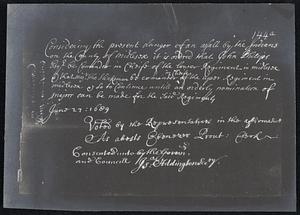 144a
Considering the present danger of an assault by the Indians
on the County of midlesex it is ordered that John Philips
Esqr be Comander in Cheife of the lower Regiment in midlesex
& that be comander of the uper Regiment in
midlesex & so to Continue until an orderly nomination of
major can be made for the said Regiments
June 27: 1689
Voted by the Representatives in the affirmative
As attests Ebenezer Prout: Clerk
Consented unto by the Govern
and Councill Js: Addington Secry